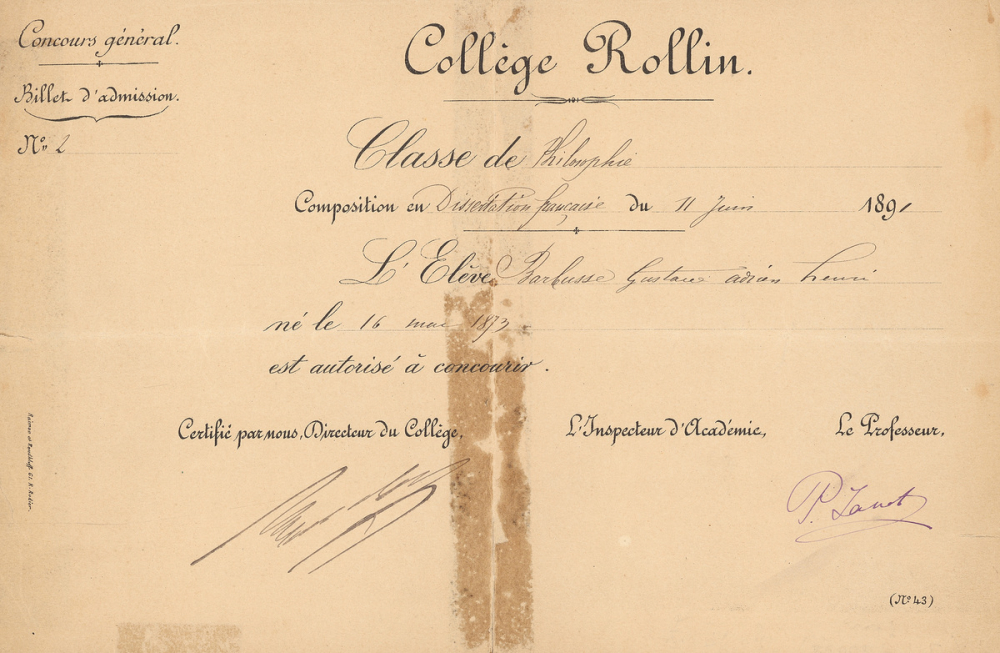 Concours général.
Billet d'admission.
N° 2
Collège Rollin.
Classe de Philosophie
Composition en Dissertation française du 11 Juin 1891
L'Elève Barbusse Gustave adrien henri
né le 16 mai 1873
est autorisé à concourir.
Certifié par nous, Directeur du Collège,
L'Inspecteur d'Académie,
Le Professeur,
P. Janet
(N° 43)